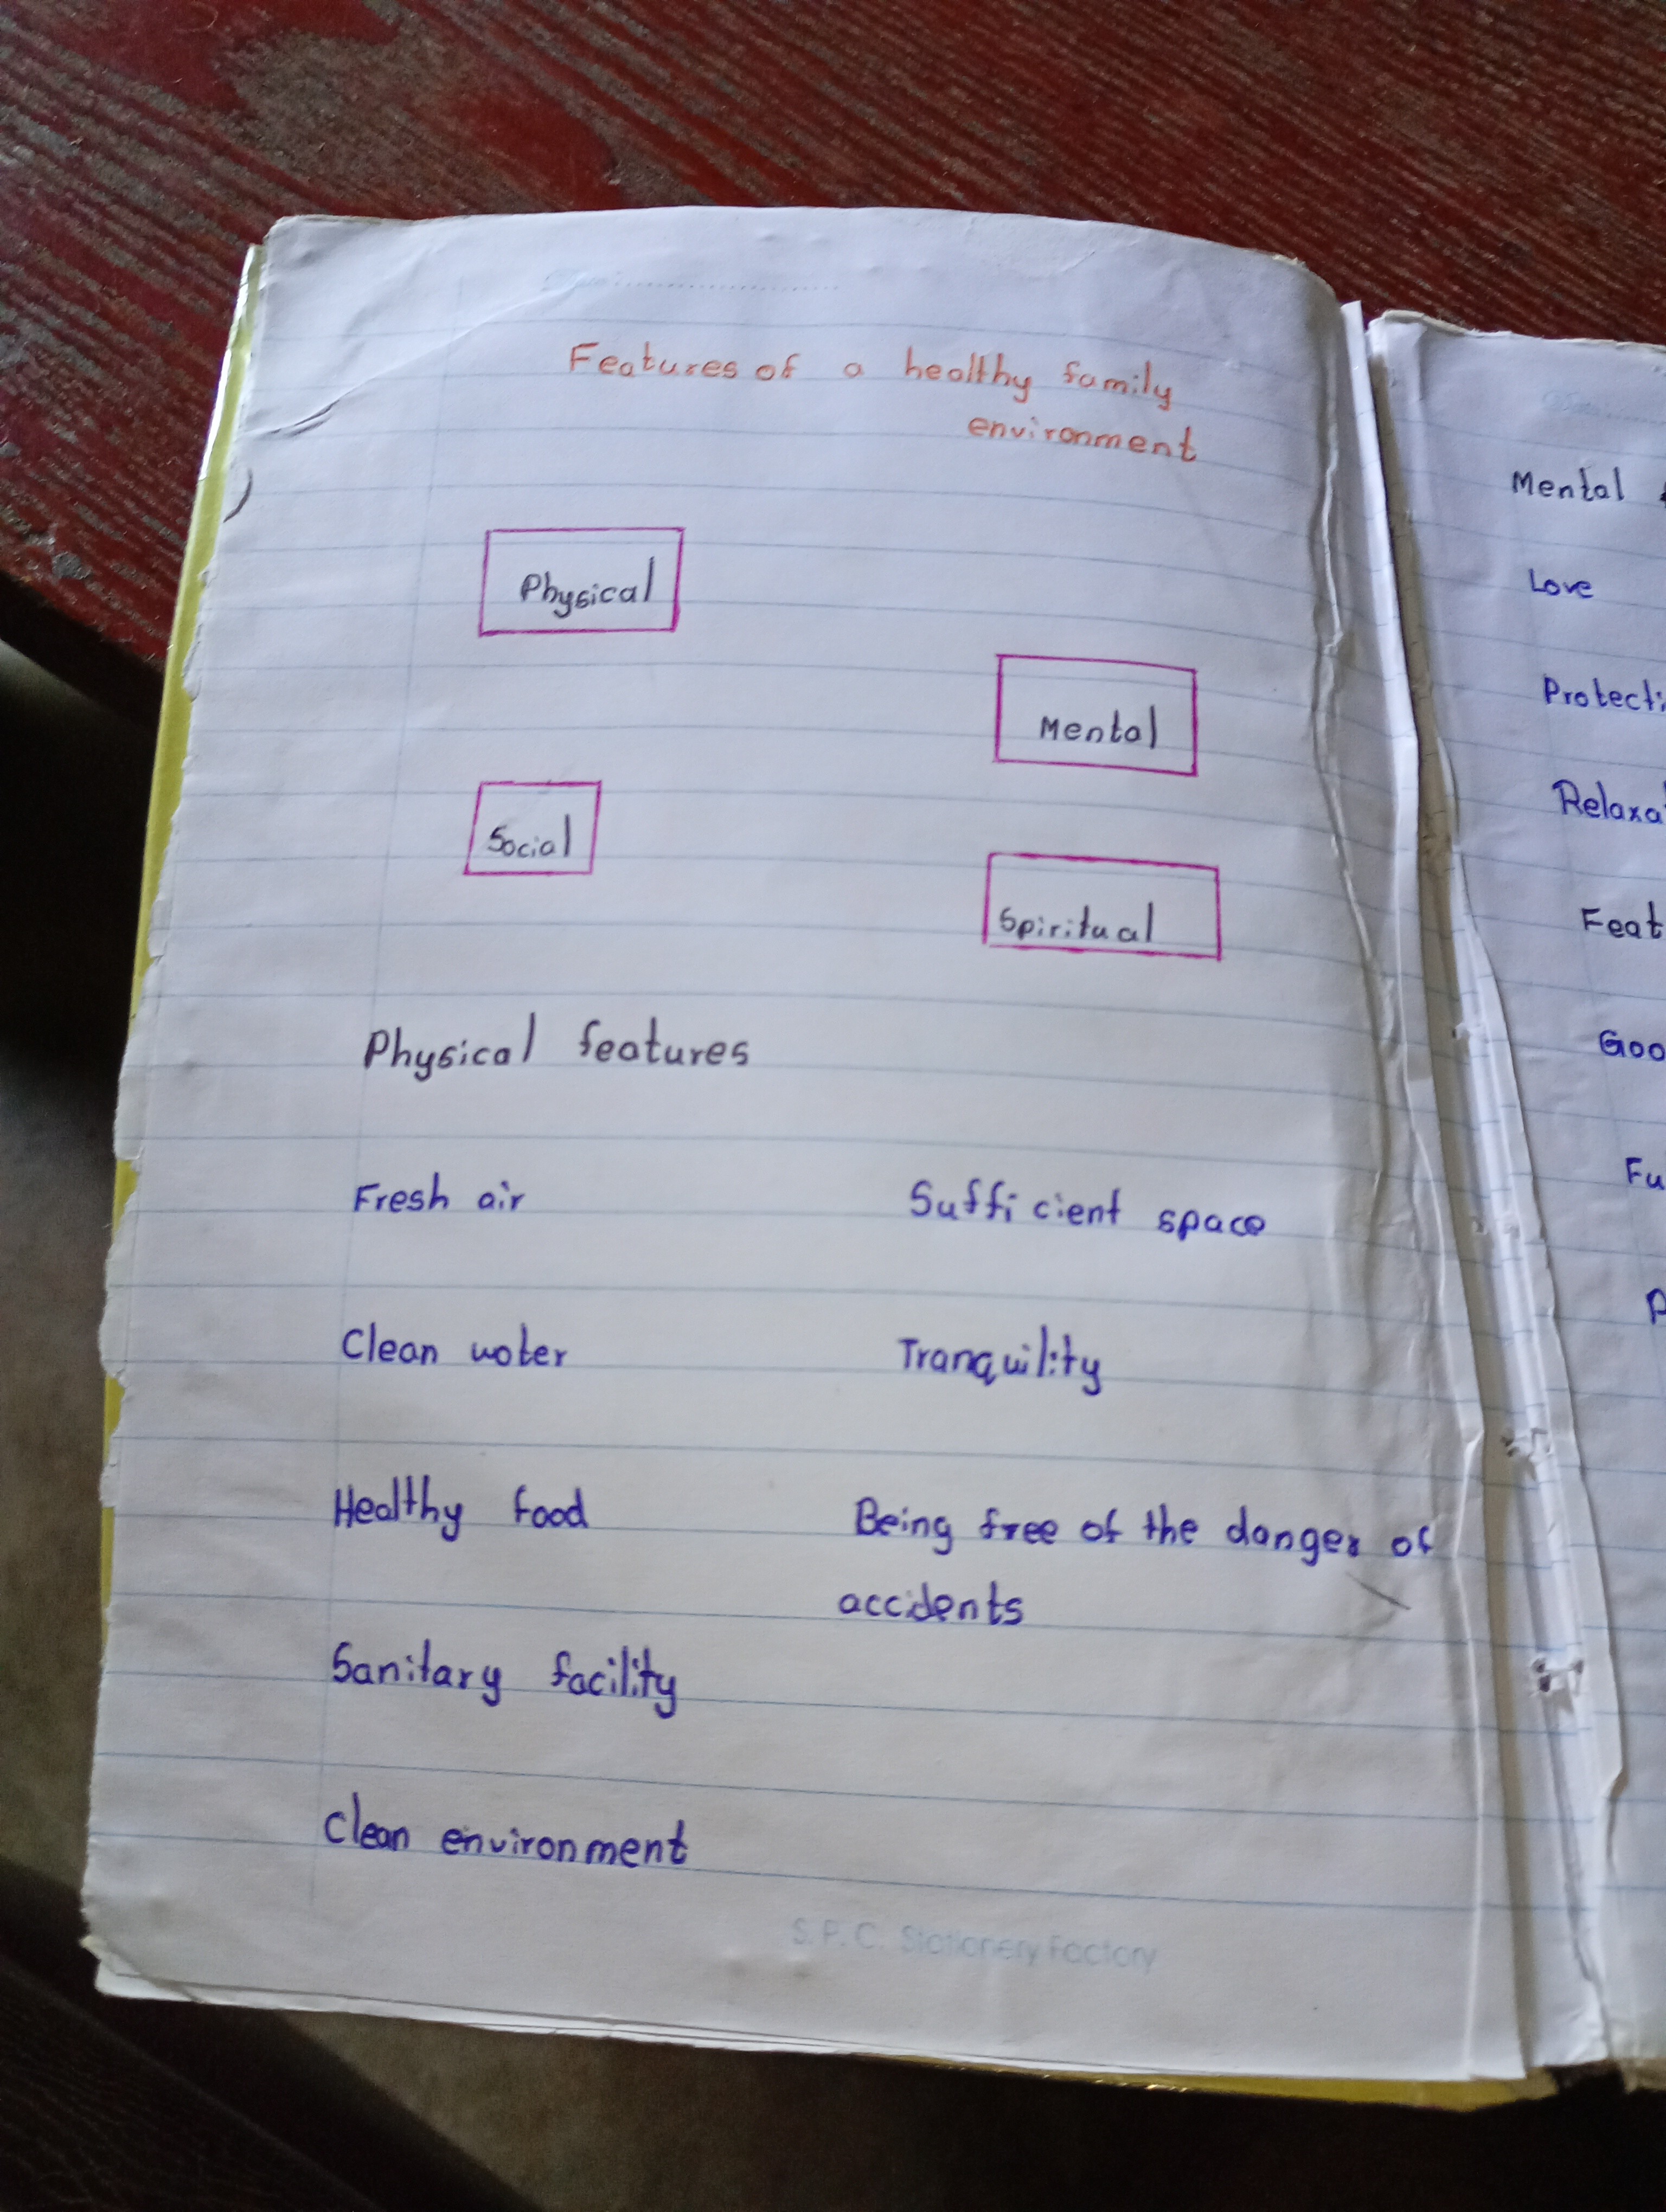 Features of a healthy family
environment
Physical
Mental
Social
Spiritual
Physical features
Fresh air
Sufficient space
Clean water
Tranquility
Healthy food
Being free of the danger of
accidents
Sanitary facility
Clean environment
S.P.C. Stationery Factory
Mental
Love